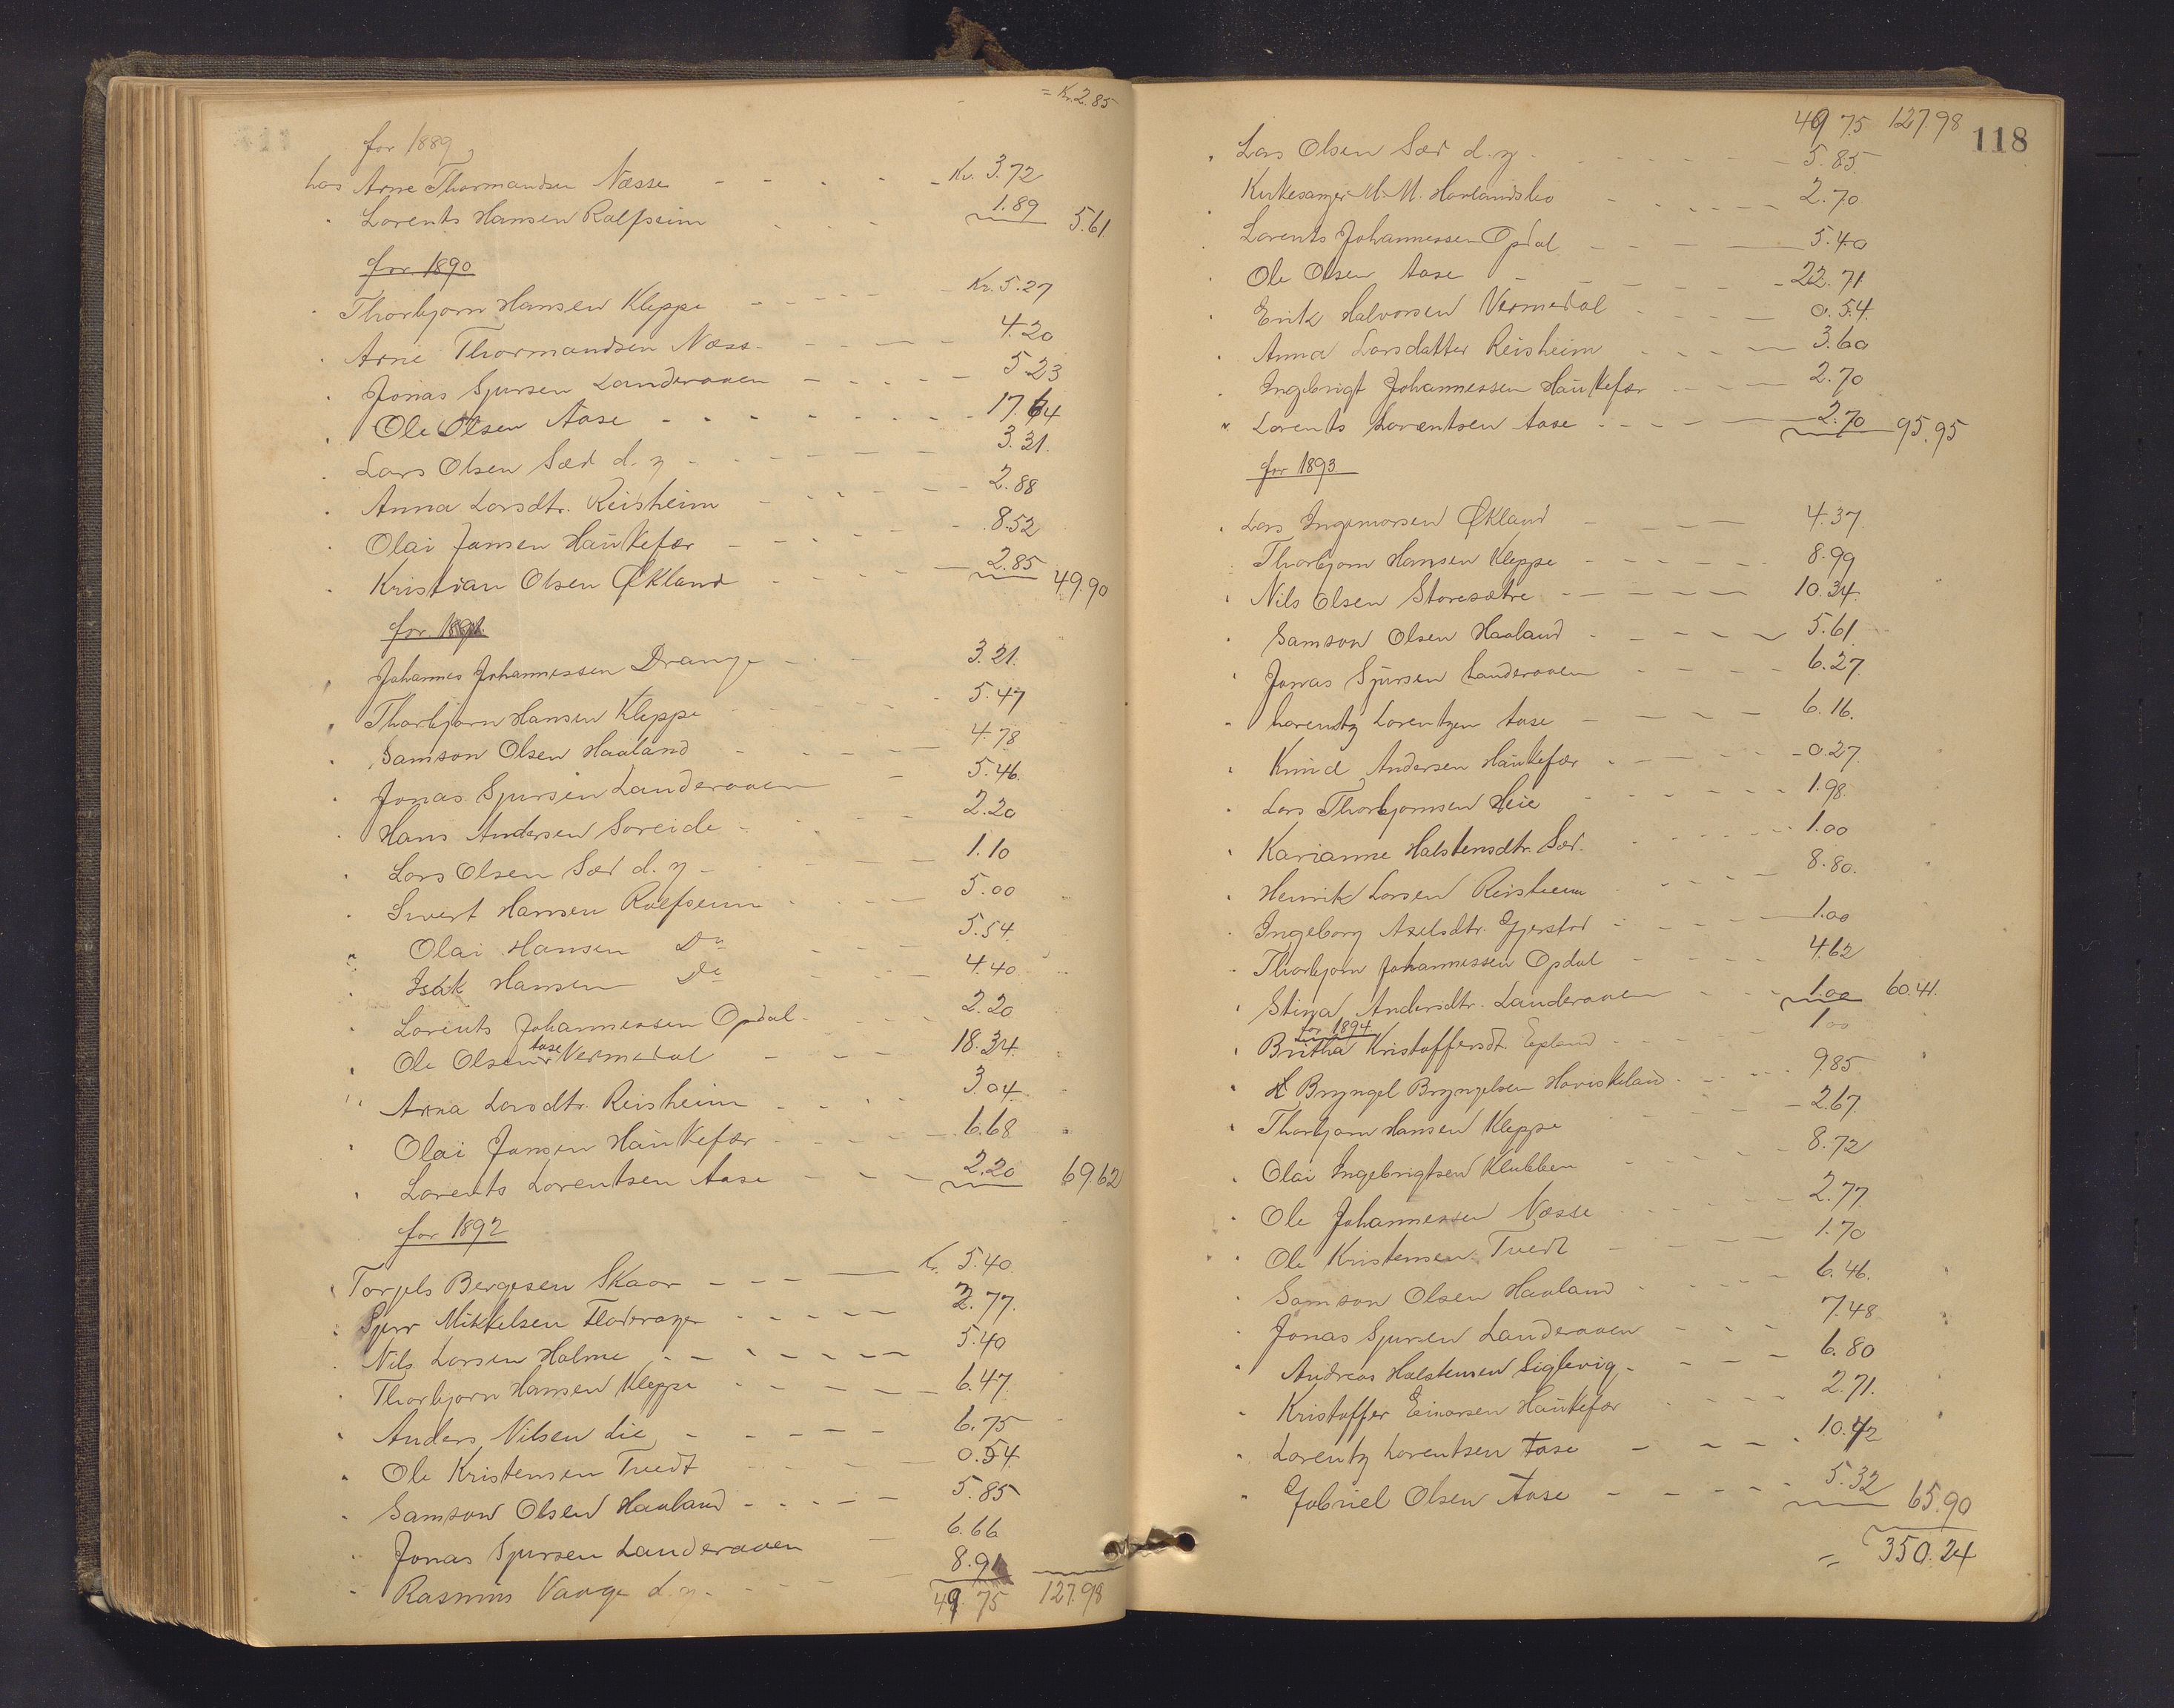 = Kr. 2.85
for 1889
hos Arne Thormandsen Næsse - - - - Kr. 3.72
" Lorents Hansen Rolfseim - - - 1.89 5.61
for 1890
" Thorbjørn Hansen Kleppe - - - - Kr. 5.27
" Arne Thormandsen Næss - - - - 4.20
" Jonas Sjursen Landeraaen - - - - 5.23
" Ole Olsen Aase - - - - 17.64
" Lars Olsen Sæd d. y. - - - - 3.31
" Anna Larsdtr. Reisheim - - - - 2.88
" Olai Jansen Haukefær - - - - 8.52
" Kristian Olsen Økland - - - - 2.85 49.90
for 1891
" Johannes Johannessen Drange - - 3.21
" Thorbjørn Hansen Kleppe - - 5.47
" Samson Olsen Haaland - - - 4.78
" Jonas Sjursen Landeraaen - 5.46
" Hans Andersen Søreide - - - 2.20
" Lars Olsen Sæd d. y. - - 1.10
" Sivert Hansen Rolfseim - - - 5.00
" Olai Hansen Do - - 5.54
" Isak Hansen Do - - 4.40
" Lorents Johannessen Opdal - - - 2.20
" Ole Olsen Aase Vermedal - - - 18.34
" Anna Larsdtr. Reisheim - - - 3.04
" Olai Jansen Haukefær - - - 6.68
" Lorents Lorentsen Aase - - - 2.20 69.62
for 1892
" Torgels Bergesen Skaar - - - Kr. 5.40
" Sjur Mikkelsen Fladerager - - - - 2.77
" Nils Larsen Holme - - - - 5.40
" Thorbjørn Hansen Kleppe - - - - 6.47
" Anders Nilsen Lie - - - - 6.75
" Ole Kristensen Tvedt - - - 0.54
" Samson Olsen Haaland - - - - 5.85
" Jonas Sjursen Landeraaen - 6.66
" Rasmus Vaage d. y. - - - 8.91
49.75 127.98
49.75 127.98
118
" Lars Olsen Sæd d. y. - - - - 5.85
" Kirkesanger M. M. Havlandslio - - - - 2.70
" Lorents Johannessen Opdal - - - 5.40
" Ole Olsen Aase - - - - 22.71
" Erik Halvorsen Vermedal - - - - 0.54
" Anna Larsdatter Reisheim - - - - 3.60
" Ingebrigt Johannessen Haukefær - - - - 2.70
" Lorents Lorentsen Aase - - - - 2.70 95.95
for 1893
" Lars Ingemorsen Økland - - - 4.37
" Thorbjørn Hansen Kleppe - - - - 8.99
" Nils Olsen Storesætre - - - - 10.34
" Samson Olsen Haaland - - - - 5.61
" Jonas Sjursen Landeraaen - - - - 6.27
" Lorentz Lorentzen Aase - - - - 6.16
" Knud Andersen Haukefær - - - - 0.27
" Lars Thorbjørnsen Heie - - - - 1.98
" Karianne Halstensdtr. Sæd - - - - 1.00
" Henrik Larsen Reisheim - - - - 8.80
" Ingeborg Axelsdtr. Gjerstad - - - 1.00
" Thorbjørn Johannessen Opdal - - - - 4.62
" Stina Andersdtr. Landeraaen - - - 1.00 60.41
for 1894
" Britha Kristoffersdt. Epland - - - 1.00
" Bryngel Bryngelsen Haviskeland - - - - 9.85
" Thorbjørn Hansen Kleppe - - - 2.67
" Olai Ingebrigtsen Klubben - - - - 8.72
" Ole Johannessen Næsse - - - - 2.77
" Ole Kristensen Tvedt - - - 1.70
" Samson Olsen Haaland - - - - 6.46
" Jonas Sjursen Landeraaen - - - 7.48
" Andreas Halstensen Siglevig - - - - 6.80
" Kristoffer Einarsen Haukefær - - - 2.71
" Lorentz Lorentsen Aase - - - - 10.42
" Gabriel Olsen Aase - - - - 5.32 65.90
= 350.24